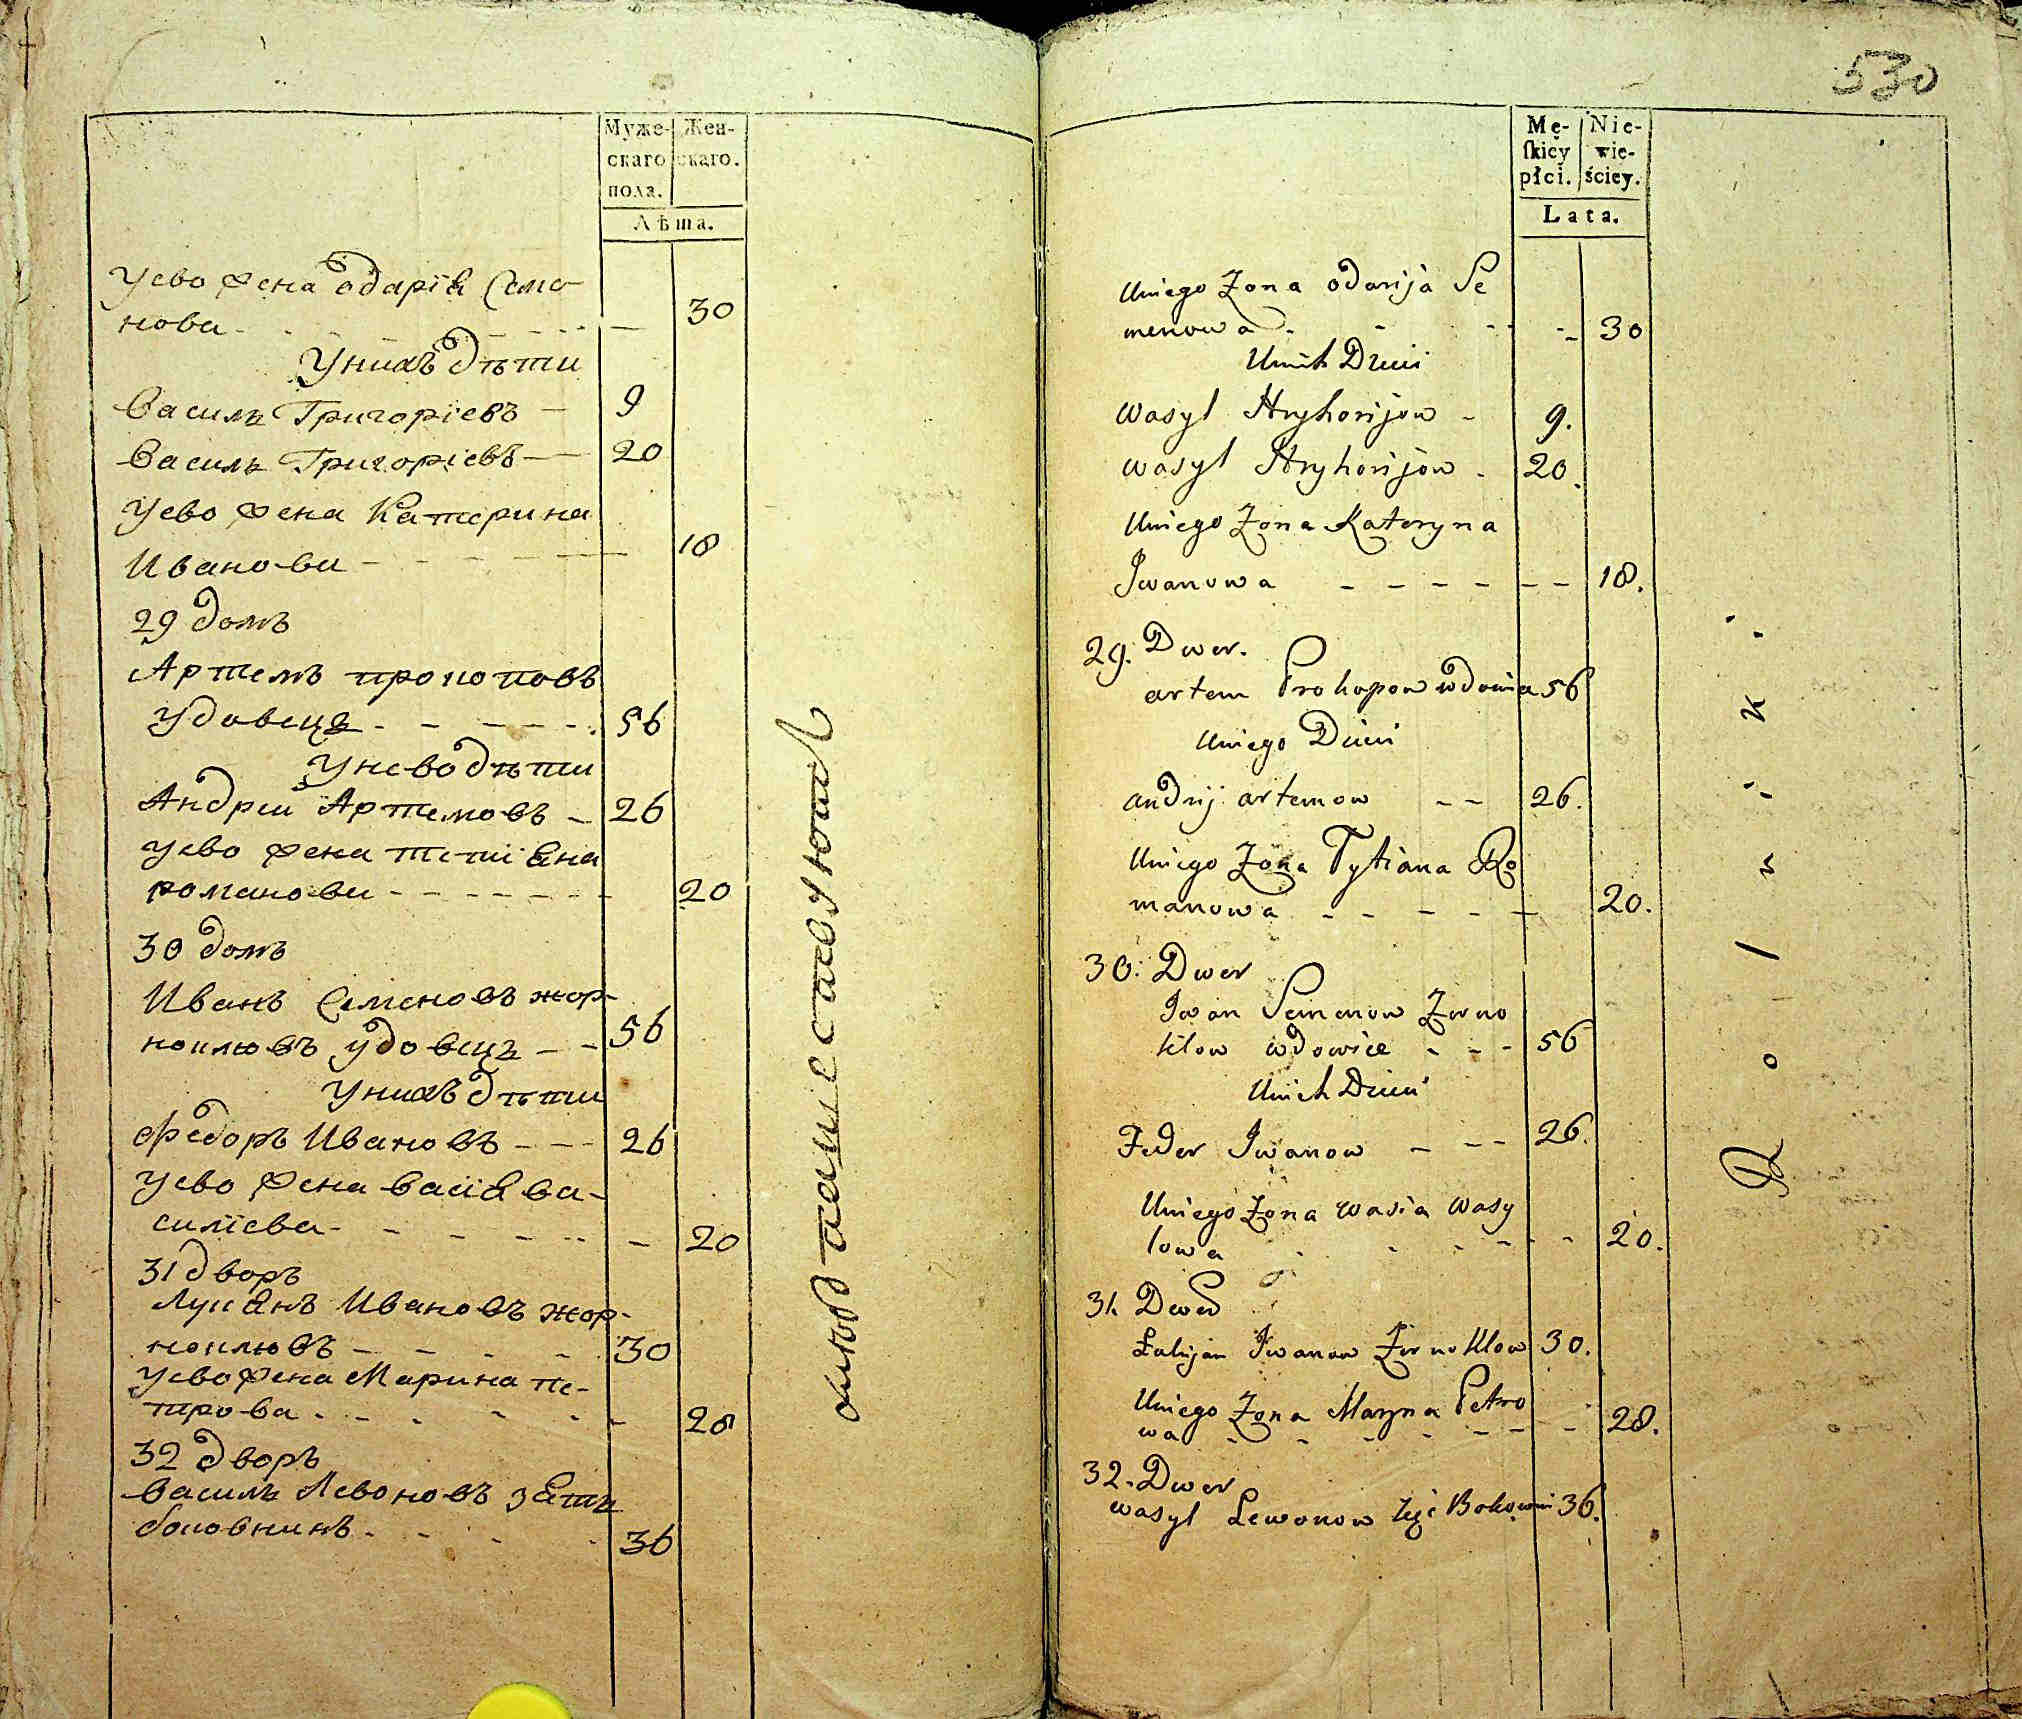 Муже-
скаго
пола.
Жен-
скаго.
Лѣта.
Уево жена Одарія Семе-
нова - - - - 30
Унихъ дѣти
Василь Григоріевъ — 9
Василь Григоріевъ — 20
Уево жена Катерина
Иванова - - - - 18
29 домъ
Артемъ прокоповъ
удовецъ - - - - 56
Унево дѣти
Андрей Артемовъ - 26
Уево жена тетіяна
романова - - - - 20
30 домъ
Иванъ Семеновъ жор-
ноклювъ удовецъ - - 56
Унихъ дѣти
Федоръ Ивановъ - - - 26
Уево жена васія ва-
силіева - - - - 20
31 дворъ
Лукянъ Ивановъ жор-
ноклювъ - - - - 30
Уево жена Марина пе-
трова - - - - 28
32 дворъ
Василь Левоновъ зять
боковнинъ - - - 36
530
Mę-
ſkiey
płci.
Nie-
wie-
ściey.
Lata.
Uniego Zona Odarija Se
menowa - - - - 30
Unich Dzieci
Wasyl Hryhorijow - 9.
Wasyl Hryhorijow - 20.
Uniego Zona Kateryna
Jwanowa - - - - - - 18.
29. Dwer.
artem Prokopow wdowia 56
Uniego Dzieci
andrij artemow - - 26.
Uniego Zona Tytiana Ro
manowa - - - - - 20.
30. Dwer
Jwan Semenow Zorno
klow wdowiec - - - 56
Unich Dzieci
Feder Jwanow - - - 26.
Uniego Zona wasia wasy
lowa - - - - - 20.
31. Dwer
Łukijan Jwanow Zornoklow 30.
Uniego Zona Maryna Petro
wa - - - - - - - 28.
32. Dwer
wasyl Lewonow Zięć 36.
Rolniki.